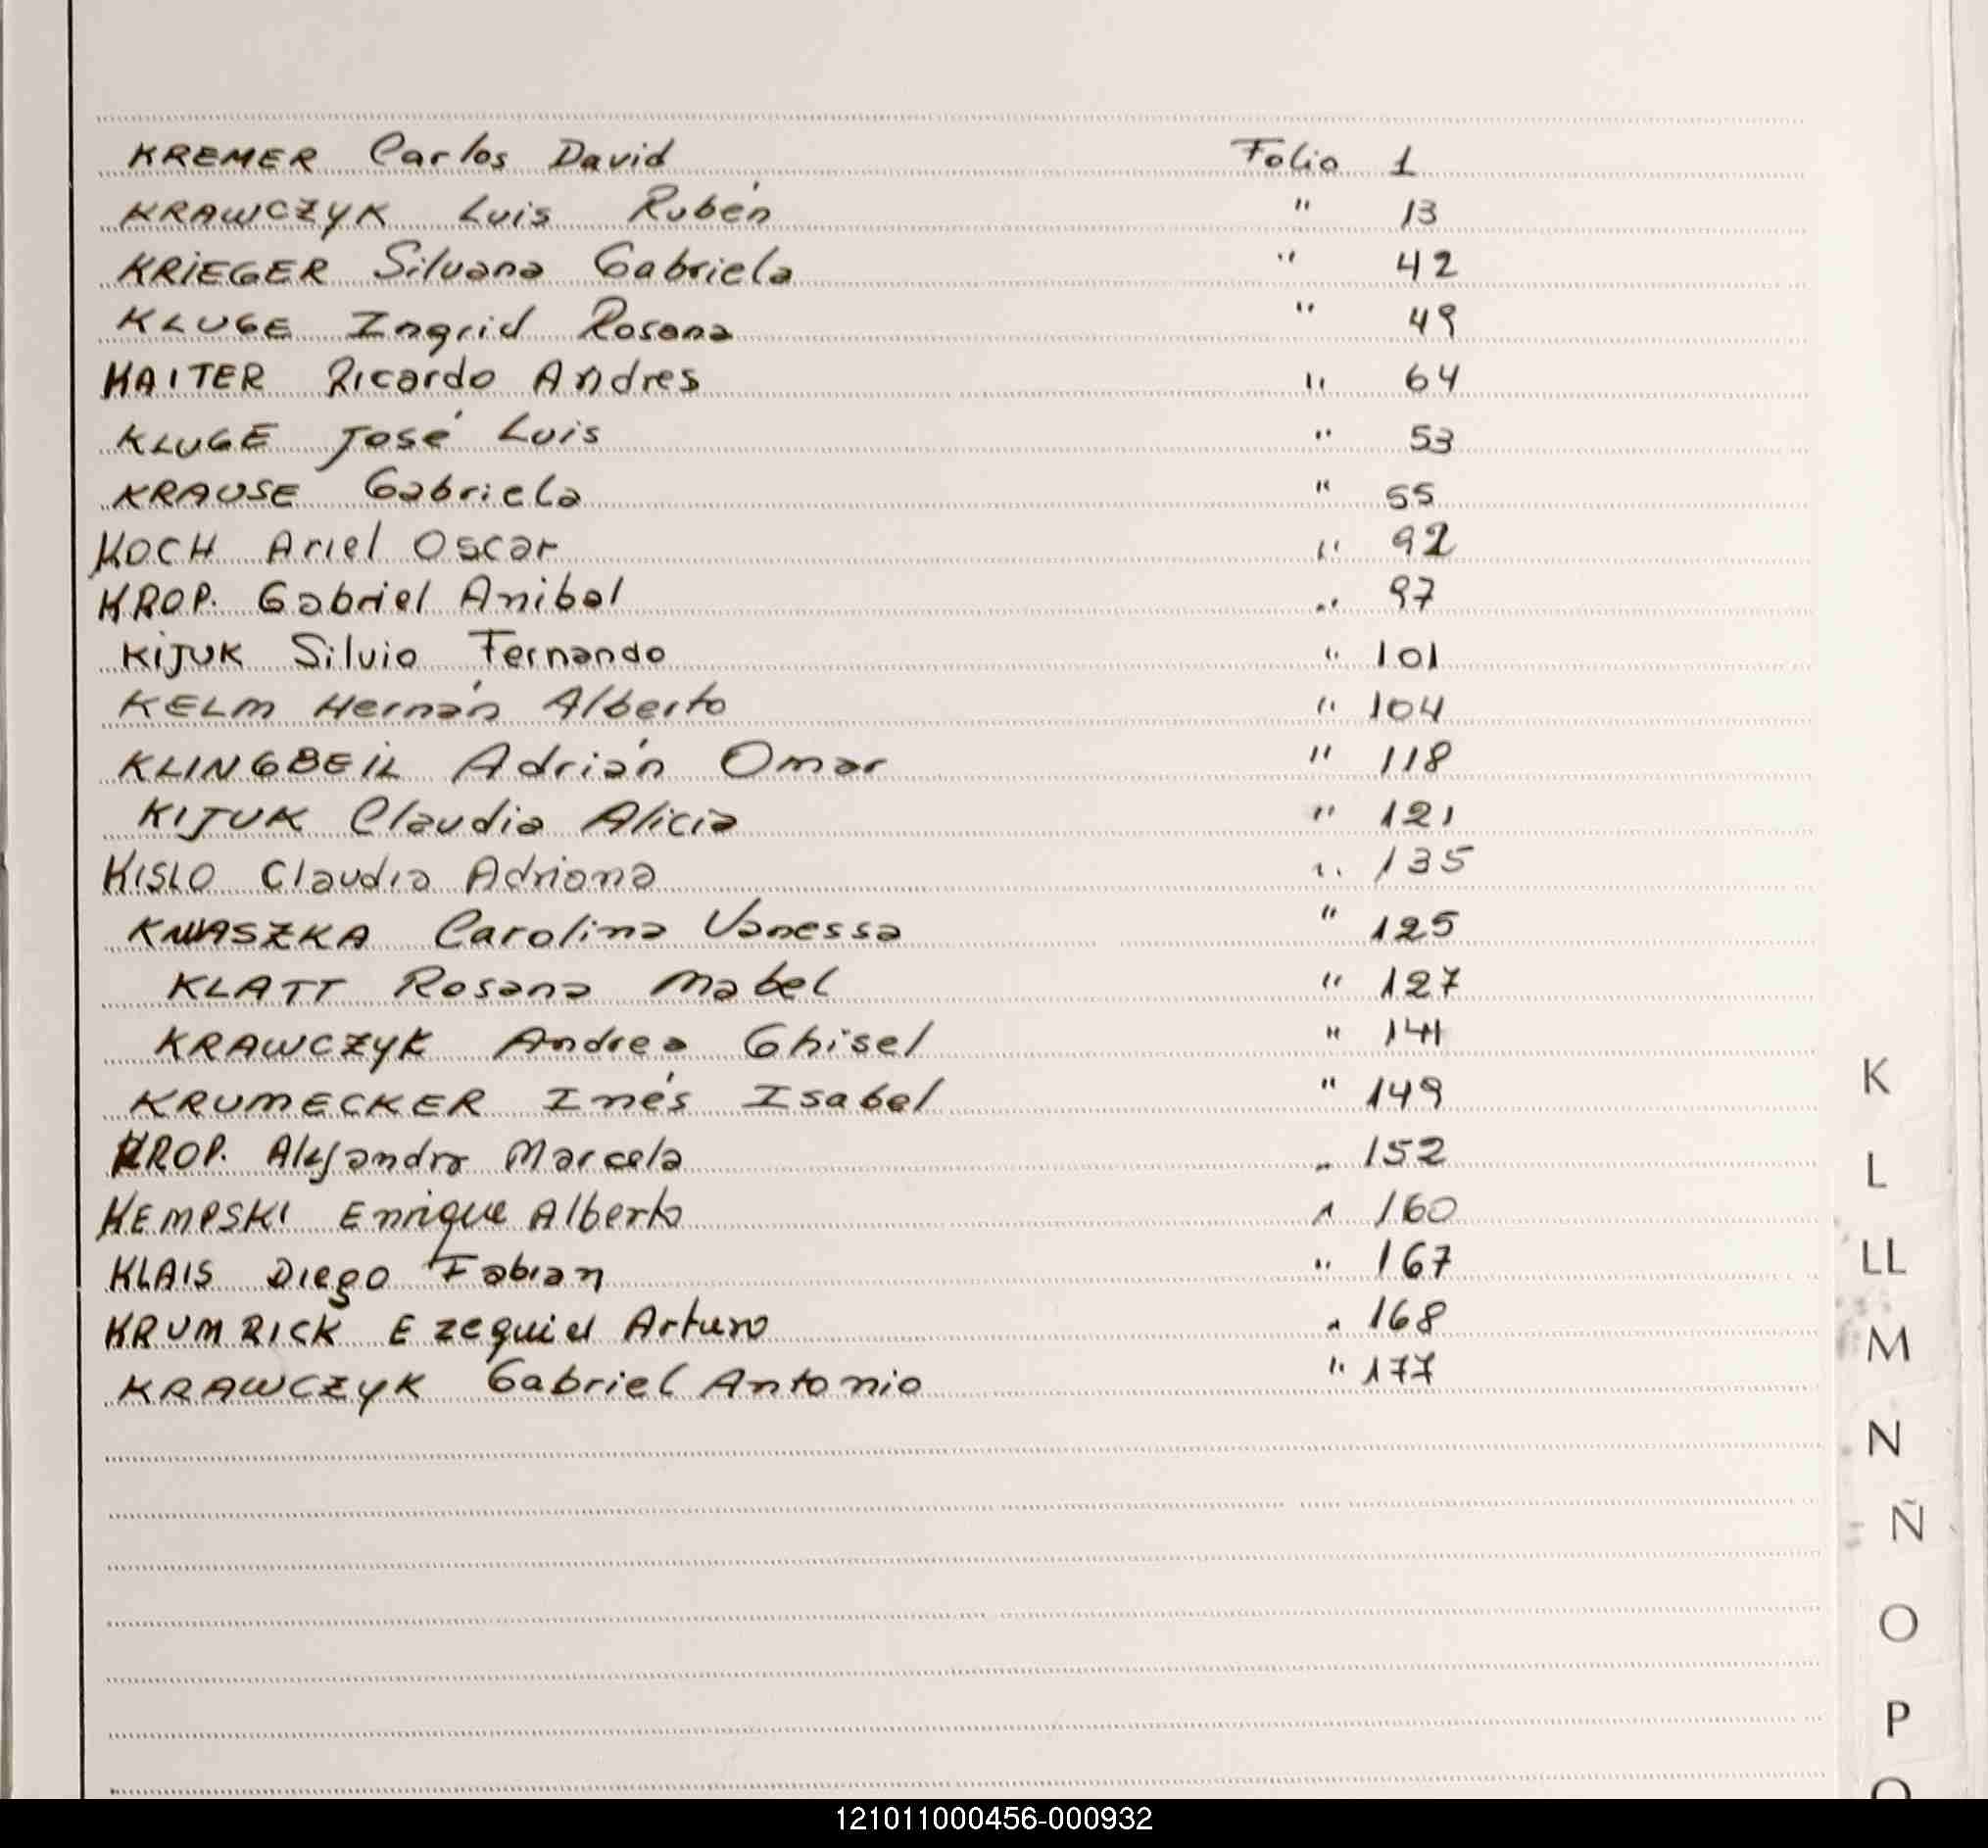 KREMER Carlos David Folio 1
KRAWCZYK Luis Rubén " 13
KRIEGER Silvana Gabriela " 42
KLUGE Ingrid Rosana " 49
KAITER Ricardo Andres " 64
KLUGE José Luis " 53
KRAUSE Gabriela " 55
KOCH Ariel Oscar " 92
KROP. Gabriel Anibal " 97
KIJUK Silvio Fernando " 101
KELM Hernán Alberto " 104
KLINGBEIL Adrián Omar " 118
KIJUK Claudia Alicia " 121
KISLO Claudia Adriana " 135
Carolina Vanessa " 125
KLATT Rosana Mabel " 127
KRAWCZYK Andrea Ghisel "
KRUMECKER Inés Isabel " 149
KROP. Alejandra Marcela " 152
KEMPSKI Enrique Alberto " 160
KLAIS Diego Fabian " 167
KRUMRICK Ezequiel Arturo " 168
KRAWCZYK Gabriel Antonio " 177
K
L
LL
M
N
Ñ
O
P
121011000456-000932